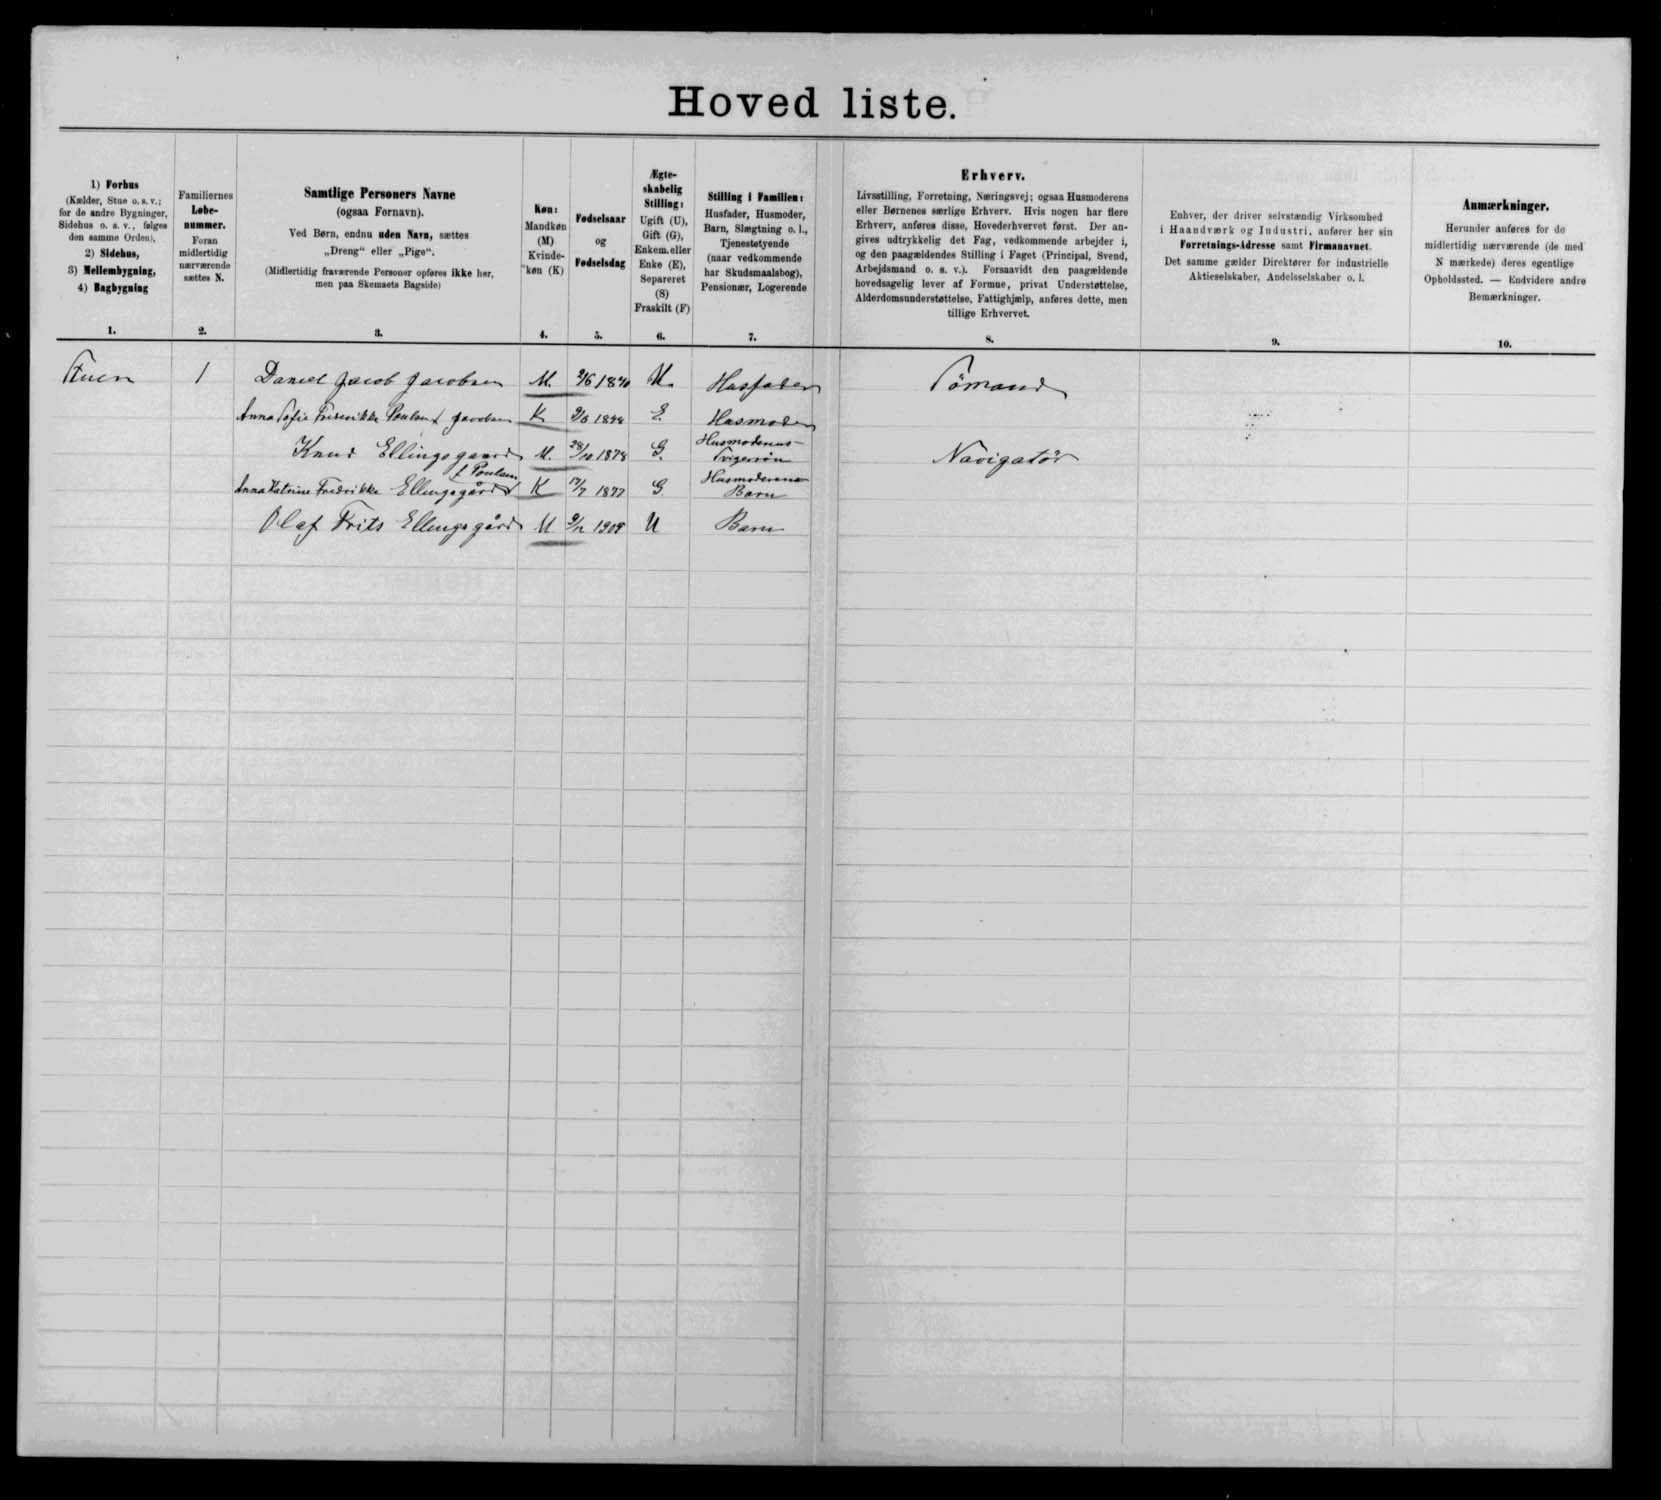 Hoved liste.
1) Forhus
(Kælder, Stue o. s. v.;
for de andre Bygninger,
Sidehus o. s. v., følges
den samme Orden),
2) Sidehus,
3) Mellembygning,
4) Bagbygning
1.
Familiernes
Løbe-
nummer.
Foran
midlertidig
nærværende
sættes N.
2.
Samtlige Personers Navne
(ogsaa Fornavn).
Ved Børn, endnu uden Navn, sættes
„Dreng“ eller „Pige“.
(Midlertidig fraværende Personer opføres ikke her,
men paa Skemaets Bagside)
3.
Køn:
Mandkøn
(M)
Kvinde-
køn (K)
4.
Fødselsaar
og
Fødselsdag
5.
Ægte-
skabelig
Stilling:
Ugift (U),
Gift (G),
Enkem. eller
Enke (E),
Separeret
(S)
Fraskilt (F)
6.
Stilling i Familien:
Husfader, Husmoder,
Barn, Slægtning o. l.,
Tjenestetyende
(naar vedkommende
har Skudsmaalsbog),
Pensionær, Logerende
7.
Erhverv.
Livsstilling, Forretning, Næringsvej; ogsaa Husmoderens
eller Børnenes særlige Erhverv. Hvis nogen har flere
Erhverv, anføres disse, Hovederhvervet først. Der an-
gives udtrykkelig det Fag, vedkommende arbejder i,
og den paagældendes Stilling i Faget (Principal, Svend,
Arbejdsmand o. s. v.). Forsaavidt den paagældende
hovedsagelig lever af Formue, privat Understøttelse,
Alderdomsunderstøttelse, Fattighjælp, anføres dette, men
tillige Erhvervet.
8.
Enhver, der driver selvstændig Virksomhed
i Haandværk og Industri, anfører her sin
Forretnings-Adresse samt Firmanavnet.
Det samme gælder Direktører for industrielle
Aktieselskaber, Andelsselskaber o. l.
9.
Anmærkninger.
Herunder anføres for de
midlertidig nærværende (de med
N mærkede) deres egentlige
Opholdssted. — Endvidere andre
Bemærkninger.
10.
Stuen 1 Daniel Jacob Jacobsen M. 2/6 1840 U. Husfader Sömand
Anna Sofie Frederikke Jacobsen K E. Husmoder
Knud Ellingsgaard M. 28/10 1878 G. Husmoderens Svigersön Navigatör
f. Poulsen
Anna Katrine Fredrikke Ellingsgård K 17/7 1877 G Husmoderens Barn
Olaf Frits Ellingsgård M 1908 U Barn